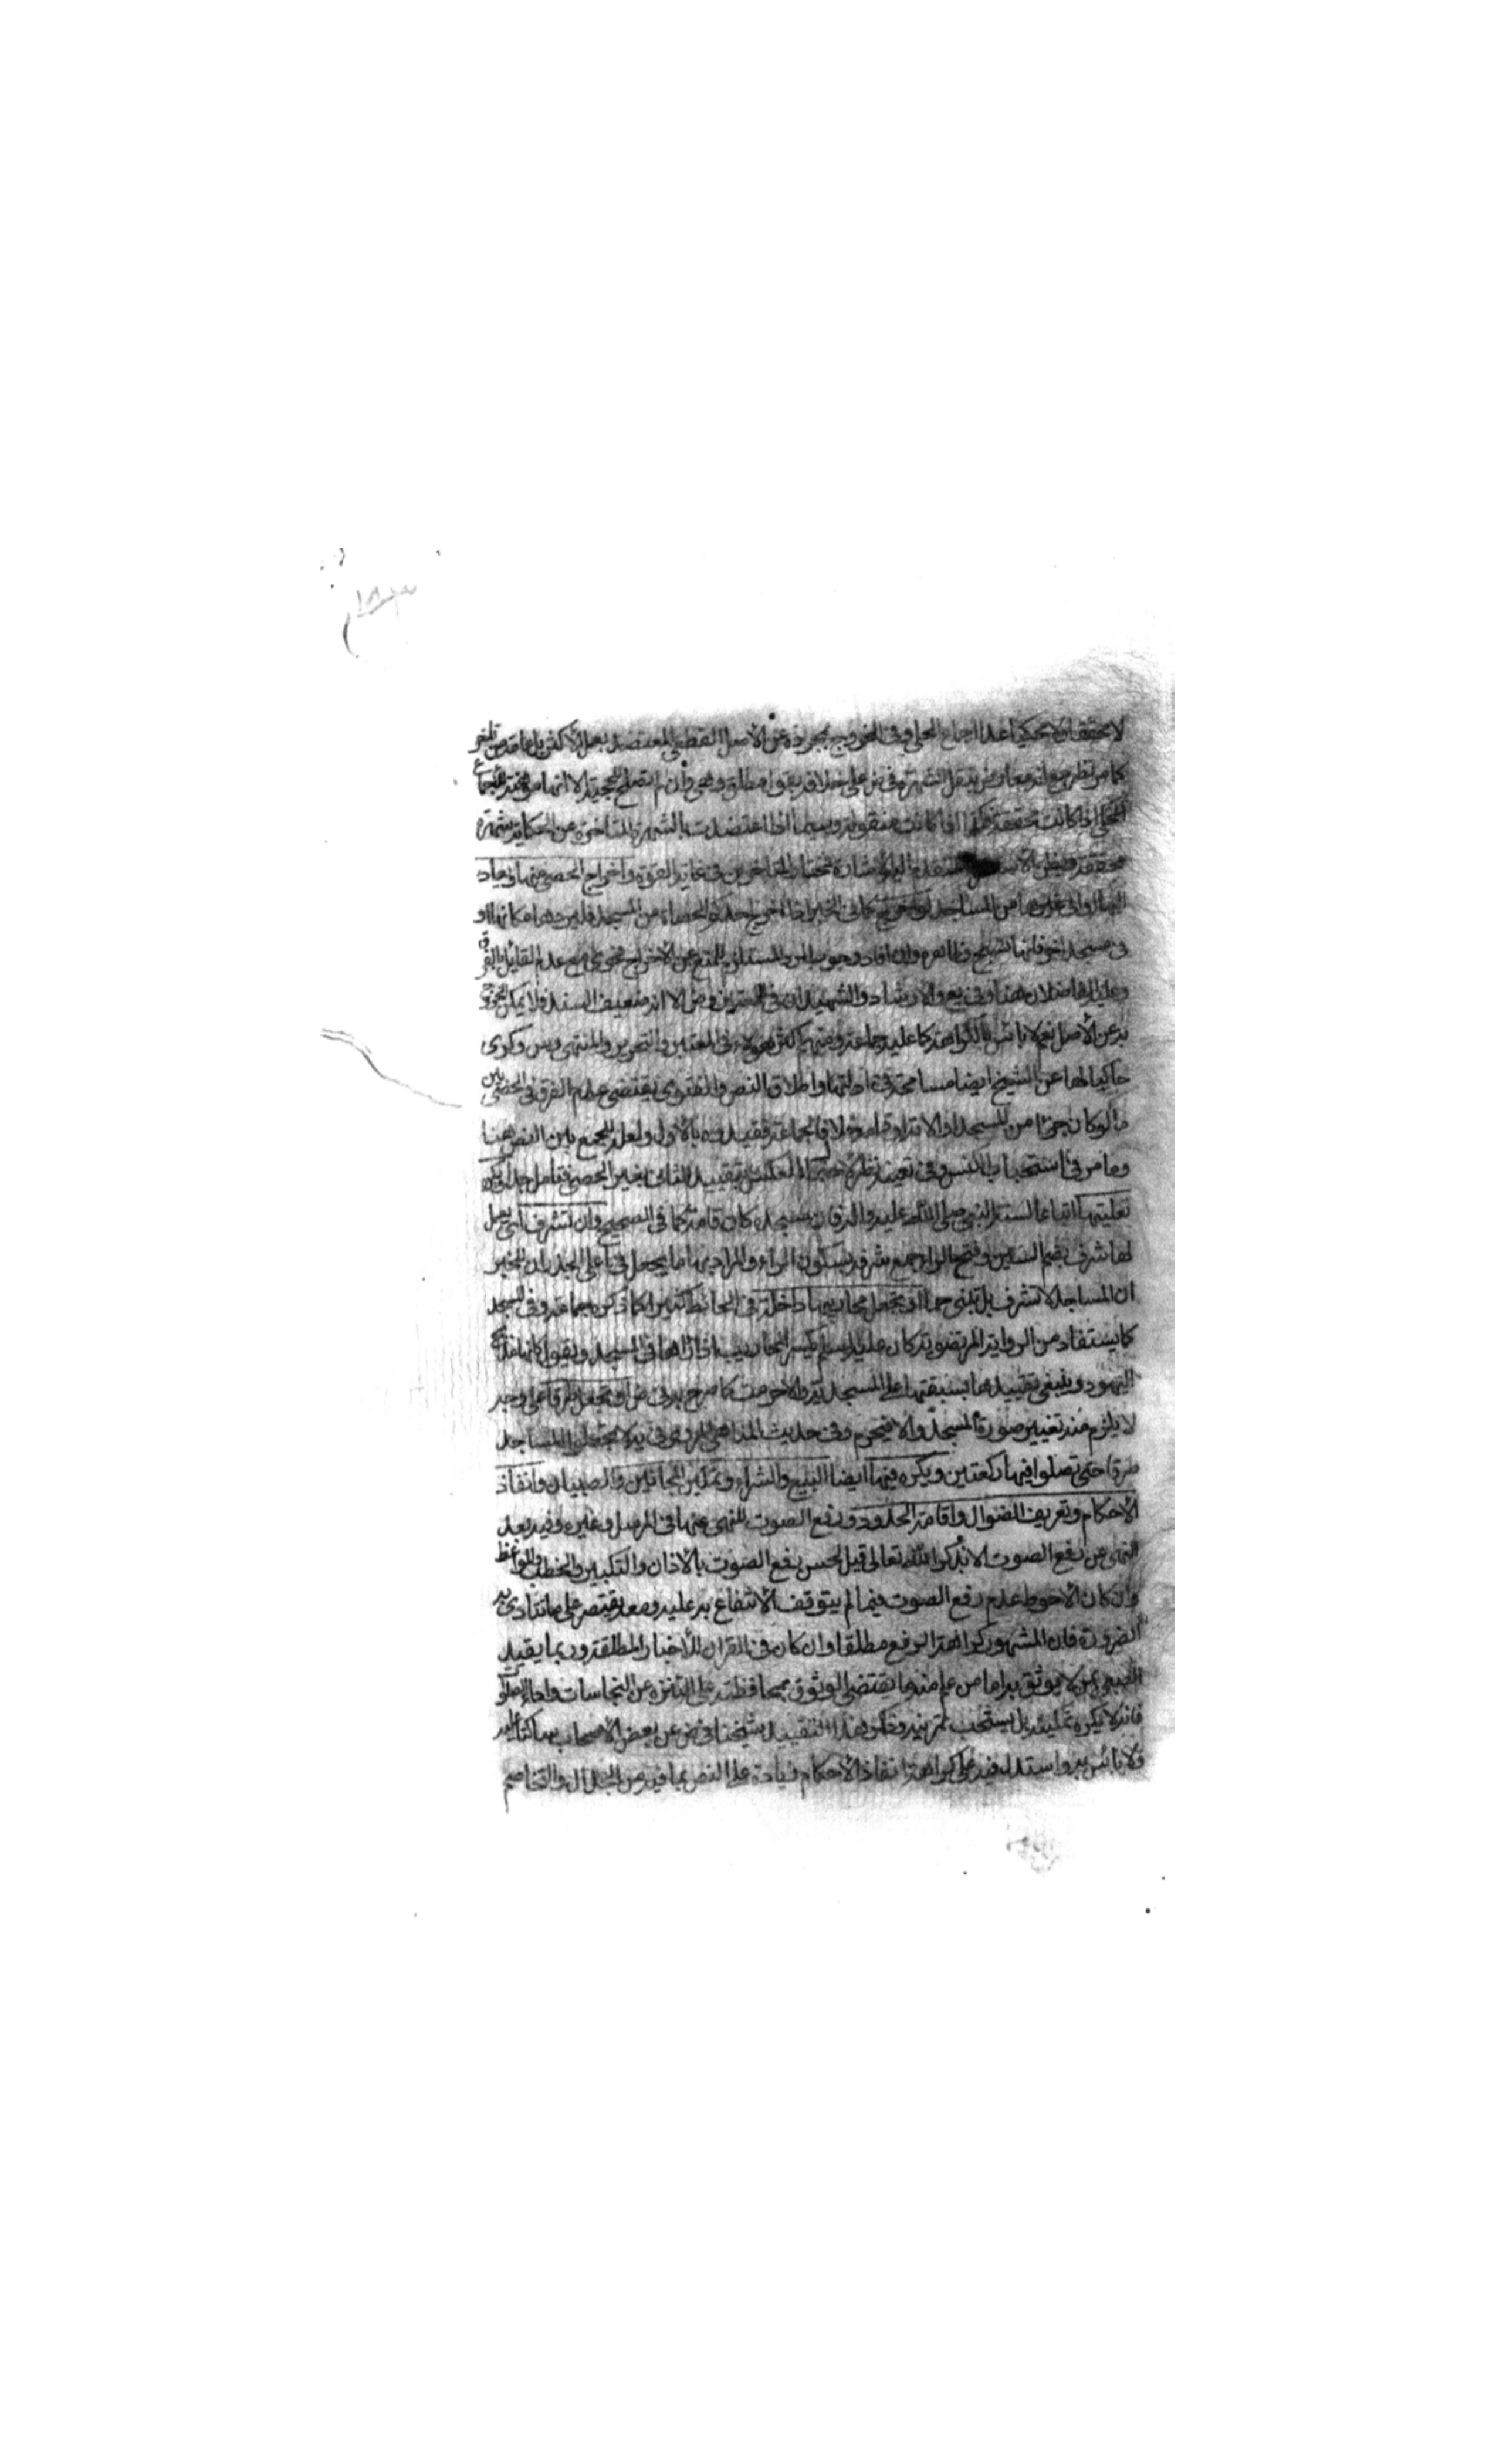 لا محققة ولا محكية عدا اجماع الحلي وفي الخروج بمجرده عن الأصل القطعي المعتضد بعمل الأكثر بل عامة من تاخر
كما مر نظر مع انه معارض بنقل الشهرة في ض على خلافه بقول مطلق وهي وان لم تصلح للحجية الا انها موهنة لاجماع
الحلي اذا كانت محققة فكذا اذا كانت منقولة وسيما اذا اعتضدت بالشهرة المتاخرة عن الحكاية شهرة
محققة المتاخرين في غاية القوة واخراج الحصى منها ويعاد
اليها او الى غيرها من المساجد لو اخرج كما في الخبر اذا اخرج احدكم الحصاة من المسجد فليردها مكانها او
في مسجد اخر فانها تسبح وظاهره وان افاد وجوب الرد المستلزم للمنع عن الاخراج مع عدم القائل بالفرق
وعليه الفاضلان هنا وفي يع والارشاد والشهيدان في وض الا انه ضعيف السند فلا يمكن الخروج
به عن الأصل نعم لا باس بالكراهة كما عليه جماعة ومنهم اكثر هؤلاء في المعتبر والتحرير والمنتهى وس وكرى
حاكيا لها عن الشيخ ايضا مسامحة في ادلتها واطلاق النص والفتوى يقتضي عدم الفرق في الحصى بين
ما لو كان جزءا من المسجد او الاته او قمامة خلافا لجماعة فقيدوه بالاول ولعله للجمع بين النص هنا
وما مر في استحباب الكنس وفي تعينه نظر لاحتمال العكس بتقييد الثاني بغير الحصى فتامل جدا ويكره
تعليتها اتباعا لسنة النبي صلى الله عليه واله فان مسجده كان قامة كما في الصحيح وان تشرف اى يعمل
لها شرف بضم الشين وفتح الراء جمع شرفة بسكون الراء والمراد بها ما يجعل في اعلى الجدران للخبر
ان المساجد لا تشرف بل تبنى جما او يجعل محاريبها داخلة في الحائط كثيرا كما ذكره جماعة وفي المسجد
كما يستفاد من الرواية المرتضوية كان عليه السلم يكسر المحاريب اذا راها في المسجد ويقول كانها مذابح
اليهود وينبغي تقييدها بسبقتها على المسجدية والا حرمت كما صرح به في ض او يجعل طرقا على وجه
لا يلزم منه تغيير صورة المسجد والا فيحرم وفي حديث المناهي المروي في يه لا تجعلوا المساجد
طرقا حتى تصلوا فيها ركعتين ويكره فيها ايضا البيع والشراء وتمكين المجانين والصبيان وانفاذ
الأحكام وتعريف الضوال واقامة الحدود ورفع الصوت للنهي عنها في المرسل وغيره وفيه بعد
النهي عن رفع الصوت الا بذكر الله تعالى قيل لحسن رفع الصوت بالاذان والتكبير والخطب والمواعظ
وان كان الاحوط عدم رفع الصوت فيما لم يتوقف الانتفاع به عليه ومعه يقتصر على ما تتادى به
الضرورة فان المشهور كراهة الرفع مطلقا وان كان في القران للأخبار المطلقة وربما يقيد
الصبي بمن لا يوثق به اما من علم منه ما يقتضي الوثوق بمحافظته على التنزه عن النجاسات واداء الصلوة
فانه لا يكره تمكينه بل يستحب تمرينه وذكر هذا التقييد شيخنا في ض عن بعض الاصحاب ساكتا عليه
ولا باس به واستدل فيه على كراهة انفاذ الأحكام زيادة على النص بما فيه من الجدال والتخاصم